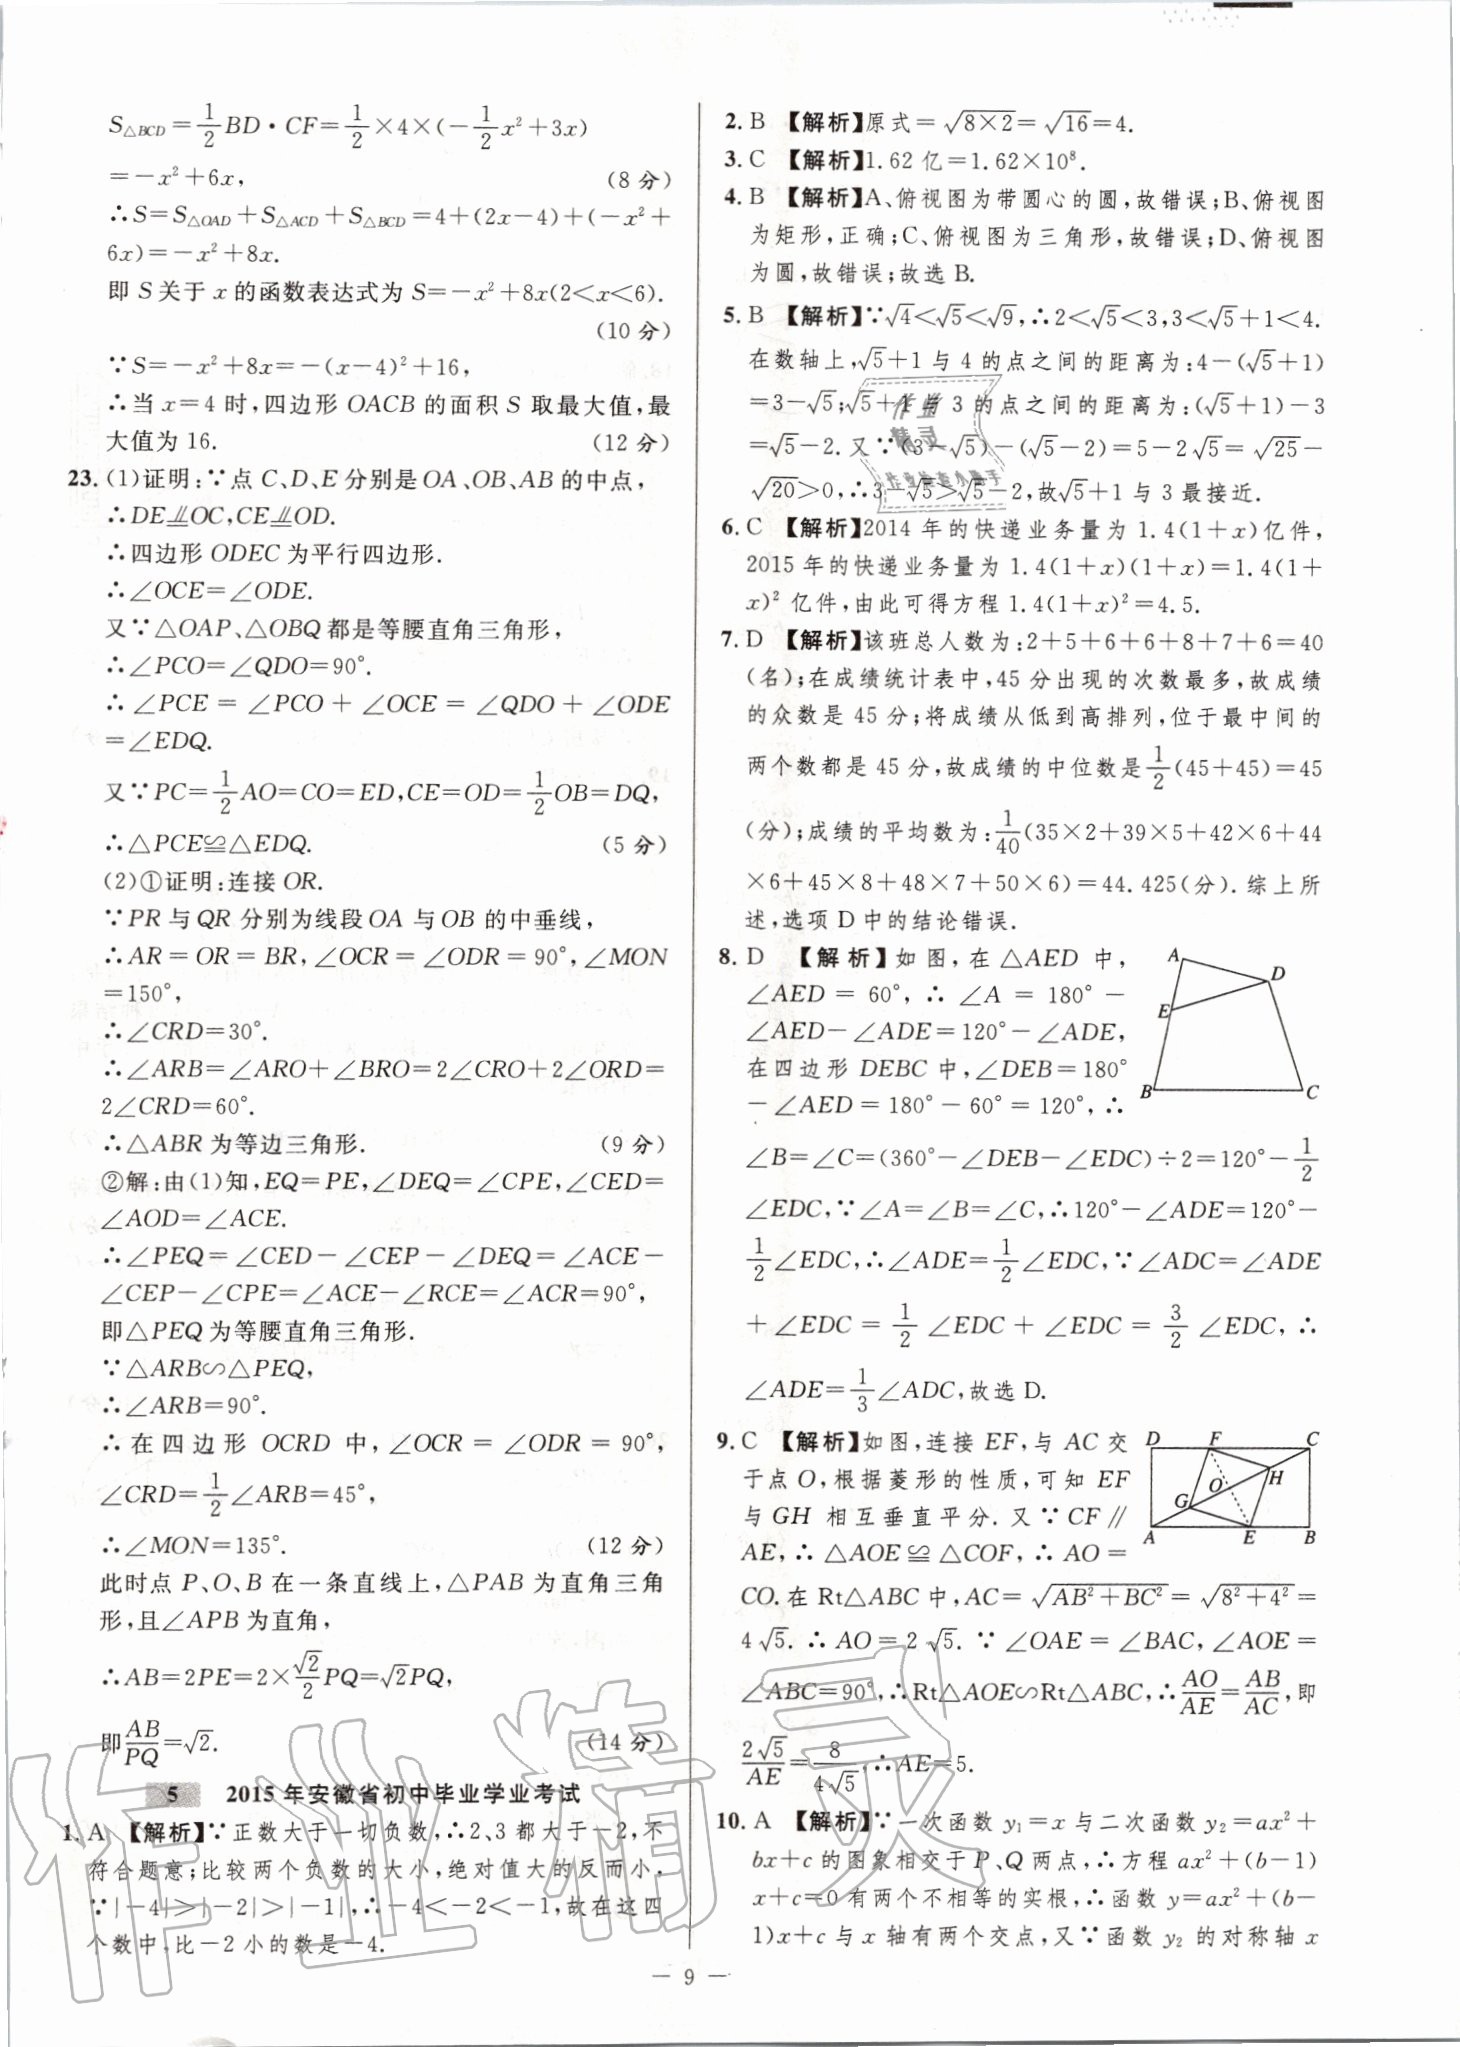 S△BCD=1/2BD·CF=1/2×4×(-1/2x²+3x)
=-x²+6x, (8分)
∴S=S△OAD+S△ACD+S△BCD=4+(2x-4)+(-x²+
6x)=-x²+8x.
即S关于x的函数表达式为S=-x²+8x(2<x<6).
(10分)
∵S=-x²+8x=-(x-4)²+16,
∴当x=4时,四边形OACB的面积S取最大值,最
大值为16. (12分)
23.(1)证明:∵点C、D、E分别是OA、OB、AB的中点,
∴DE⫽OC,CE⫽OD.
∴四边形ODEC为平行四边形.
∴∠OCE=∠ODE.
又∵△OAP、△OBQ都是等腰直角三角形,
∴∠PCO=∠QDO=90°.
∴∠PCE=∠PCO+∠OCE=∠QDO+∠ODE
=∠EDQ.
又∵PC=1/2AO=CO=ED,CE=OD=1/2OB=DQ,
∴△PCE≌△EDQ. (5分)
(2)①证明:连接OR.
∵PR与QR分别为线段OA与OB的中垂线,
∴AR=OR=BR,∠OCR=∠ODR=90°,∠MON
=150°,
∴∠CRD=30°.
∴∠ARB=∠ARO+∠BRO=2∠CRO+2∠ORD=
2∠CRD=60°.
∴△ABR为等边三角形. (9分)
②解:由(1)知,EQ=PE,∠DEQ=∠CPE,∠CED=
∠AOD=∠ACE.
∴∠PEQ=∠CED-∠CEP-∠DEQ=∠ACE-
∠CEP-∠CPE=∠ACE-∠RCE=∠ACR=90°,
即△PEQ为等腰直角三角形.
∵△ARB∽△PEQ,
∴∠ARB=90°.
∴在四边形OCRD中,∠OCR=∠ODR=90°,
∠CRD=1/2∠ARB=45°,
∴∠MON=135°. (12分)
此时点P、O、B在一条直线上,△PAB为直角三角
形,且∠APB为直角,
∴AB=2PE=2×√2/2PQ=√2PQ,
即AB/PQ=√2. (14分)
5 2015年安徽省初中毕业学业考试
1.A 【解析】∵正数大于一切负数,∴2、3都大于-2,不
符合题意;比较两个负数的大小,绝对值大的反而小,
∵|-4|>|-2|>|-1|,∴-4<-2<-1,故在这四
个数中,比-2小的数是-4.
2.B 【解析】原式=√(8×2)=√16=4.
3.C 【解析】1.62亿=1.62×10⁸.
4.B 【解析】A、俯视图为带圆心的圆,故错误;B、俯视图
为矩形,正确;C、俯视图为三角形,故错误;D、俯视图
为圆,故错误;故选B.
5.B 【解析】∵√4<√5<√9,∴2<√5<3,3<√5+1<4.
在数轴上,√5+1与4的点之间的距离为:4-(√5+1)
=3-√5;√5+1与3的点之间的距离为:(√5+1)-3
=√5-2.又∵(3-√5)-(√5-2)=5-2√5=√25-
√20>0,∴3-√5>√5-2,故√5+1与3最接近.
6.C 【解析】2014年的快递业务量为1.4(1+x)亿件,
2015年的快递业务量为1.4(1+x)(1+x)=1.4(1+
x)²亿件,由此可得方程1.4(1+x)²=4.5.
7.D 【解析】该班总人数为:2+5+6+6+8+7+6=40
(名);在成绩统计表中,45分出现的次数最多,故成绩
的众数是45分;将成绩从低到高排列,位于最中间的
两个数都是45分,故成绩的中位数是1/2(45+45)=45
(分);成绩的平均数为:1/40(35×2+39×5+42×6+44
×6+45×8+48×7+50×6)=44.425(分).综上所
述,选项D中的结论错误.
8.D 【解析】如图,在△AED中,
∠AED=60°,∴∠A=180°-
∠AED-∠ADE=120°-∠ADE,
在四边形DEBC中,∠DEB=180°
-∠AED=180°-60°=120°,∴
∠B=∠C=(360°-∠DEB-∠EDC)÷2=120°-1/2
∠EDC,∵∠A=∠B=∠C,∴120°-∠ADE=120°-
1/2∠EDC,∴∠ADE=1/2∠EDC,∵∠ADC=∠ADE
+∠EDC=1/2∠EDC+∠EDC=3/2∠EDC,∴
∠ADE=1/3∠ADC,故选D.
A
D
E
B
C
9.C 【解析】如图,连接EF,与AC交
于点O,根据菱形的性质,可知EF
与GH相互垂直平分.又∵CF∥
AE,∴△AOE≌△COF,∴AO=
CO.在Rt△ABC中,AC=√(AB²+BC²)=√(8²+4²)=
4√5.∴AO=2√5.∵∠OAE=∠BAC,∠AOE=
∠ABC=90°,∴Rt△AOE∽Rt△ABC,∴AO/AE=AB/AC,即
2√5/AE=8/4√5,∴AE=5.
D F C
O H
G
A E B
10.A 【解析】∵一次函数y₁=x与二次函数y₂=ax²+
bx+c的图象相交于P、Q两点,∴方程ax²+(b-1)
x+c=0有两个不相等的实根,∴函数y=ax²+(b-
1)x+c与x轴有两个交点,又∵函数y₂的对称轴x
— 9 —
作业
精灵
作业检查小助手
作业精灵